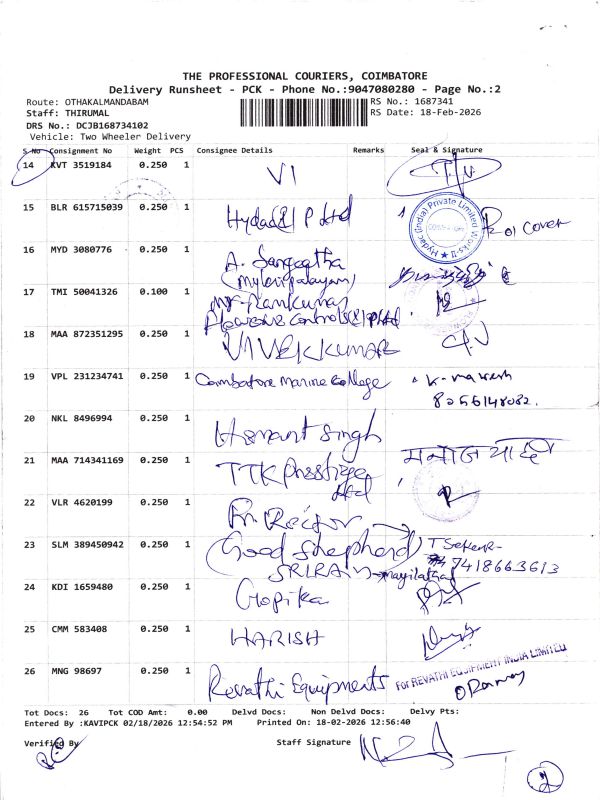 THE PROFESSIONAL COURIERS, COIMBATORE
Delivery Runsheet - PCK - Phone No.:9047080280 - Page No.:2
Route: OTHAKALMANDABAM
Staff: THIRUMAL
DRS No.: DCJB168734102
Vehicle: Two Wheeler Delivery
RS No.: 1687341
RS Date: 18-Feb-2026
S No Consignment No Weight PCS Consignee Details Remarks Seal & Signature
14 KVT 3519184 0.250 1 VI
15 BLR 615715039 0.250 1 Hydac(I) P Ltd
Hydac (India) Private Limited Works-II
Cover
16 MYD 3080776 0.250 1 A. Sangeetha
(Myleripalayam)
17 TMI 50041326 0.100 1 Mr. Ramkumar
Controls(I) P Ltd
18 MAA 872351295 0.250 1 VIVEKKUMAR
19 VPL 231234741 0.250 1 Coimbatore Marine College
8056148082.
20 NKL 8496994 0.250 1 Hemant Singh
21 MAA 714341169 0.250 1 TTK Prestige
Ltd
मनोज
22 VLR 4620199 0.250 1 Fr. Rector
23 SLM 389450942 0.250 1 (Good Shepherd)
T Seker
7418663613
SRIRAM
24 KDI 1659480 0.250 1 Gopika
25 CMM 583408 0.250 1 HARISH
26 MNG 98697 0.250 1 Revathi Equipments
For REVATHI EQUIPMENT INDIA LIMITED
Tot Docs: 26 Tot COD Amt: 0.00 Delvd Docs: Non Delvd Docs: Delvy Pts:
Entered By :KAVIPCK 02/18/2026 12:54:52 PM Printed On: 18-02-2026 12:56:40
Verified By
Staff Signature
2